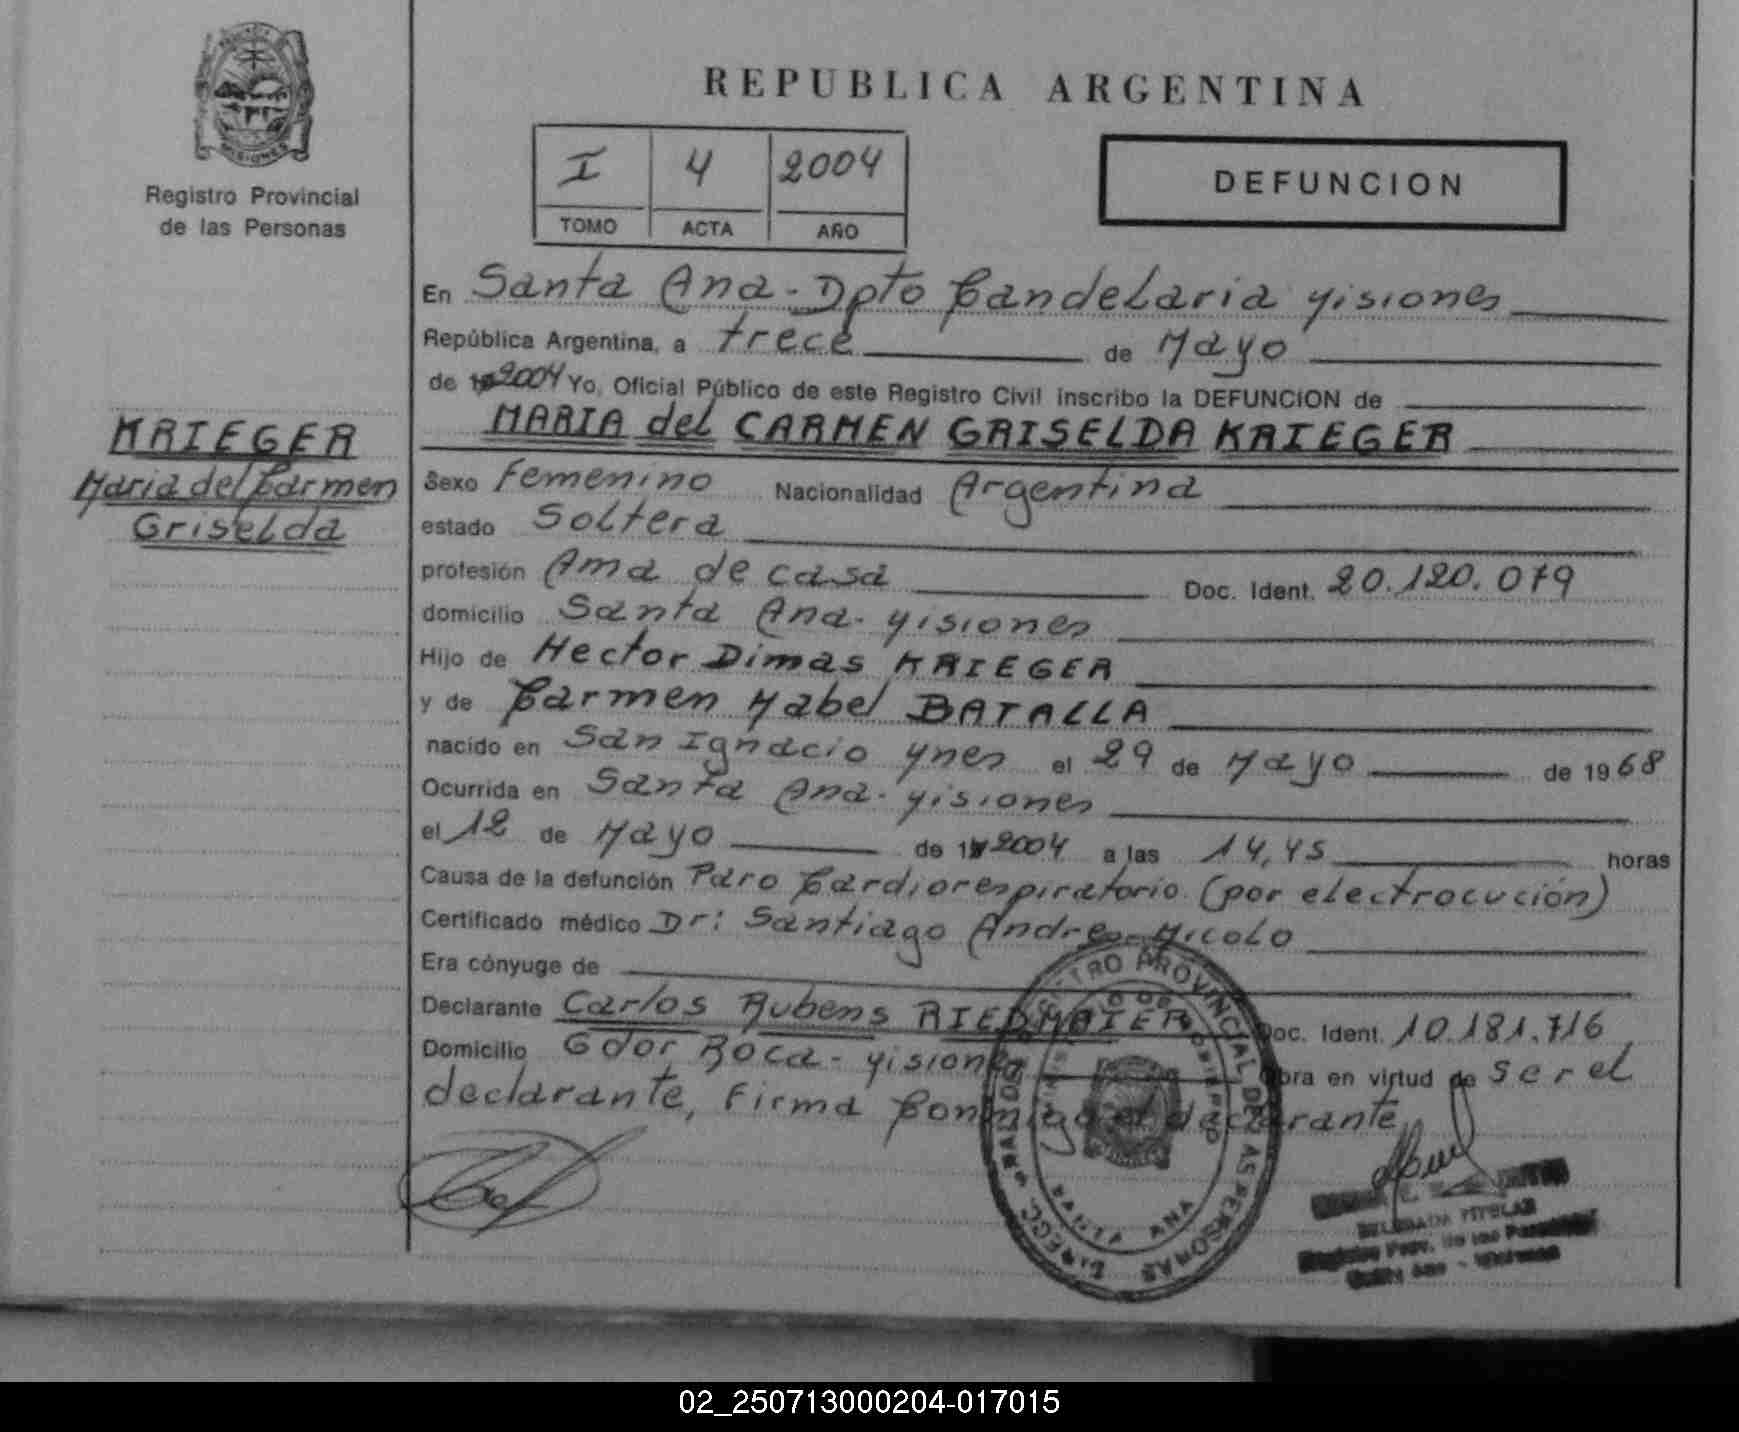 PROVINCIA
MISIONES
Registro Provincial
de las Personas
KRIEGER
Maria del Carmen
Griselda
REPUBLICA ARGENTINA
I 4 2004
TOMO ACTA AÑO
DEFUNCION
En Santa Ana - Dpto Candelaria Misiones
República Argentina, a trece de Mayo
de 2004 Yo, Oficial Público de este Registro Civil inscribo la DEFUNCION de
MARIA del CARMEN GRISELDA KRIEGER
Sexo Femenino Nacionalidad Argentina
estado Soltera
profesión Ama de casa Doc. Ident. 20.120.079
domicilio Santa Ana - Misiones
Hijo de Hector Dimas KRIEGER
y de Carmen Mabel BATALLA
nacido en San Ignacio Mnes el 29 de Mayo de 1968
Ocurrida en Santa Ana - Misiones
el 12 de Mayo de 2004 a las 14,45 horas
Causa de la defunción Paro Cardiorespiratorio (por electrocución)
Certificado médico Dr: Santiago Andres Micolo
Era cónyuge de
Declarante Carlos Rubens RIEDMAIER Doc. Ident. 10.181.716
Domicilio Gdor Roca - Misiones Obra en virtud de ser el
declarante, Firma Conmigo el declarante
REGISTRO PROVINCIAL DE LAS PERSONAS
SANTA ANA
DELEGADA TITULAR
Registro Prov. de las Personas
Santa Ana - Misiones
02_250713000204-017015